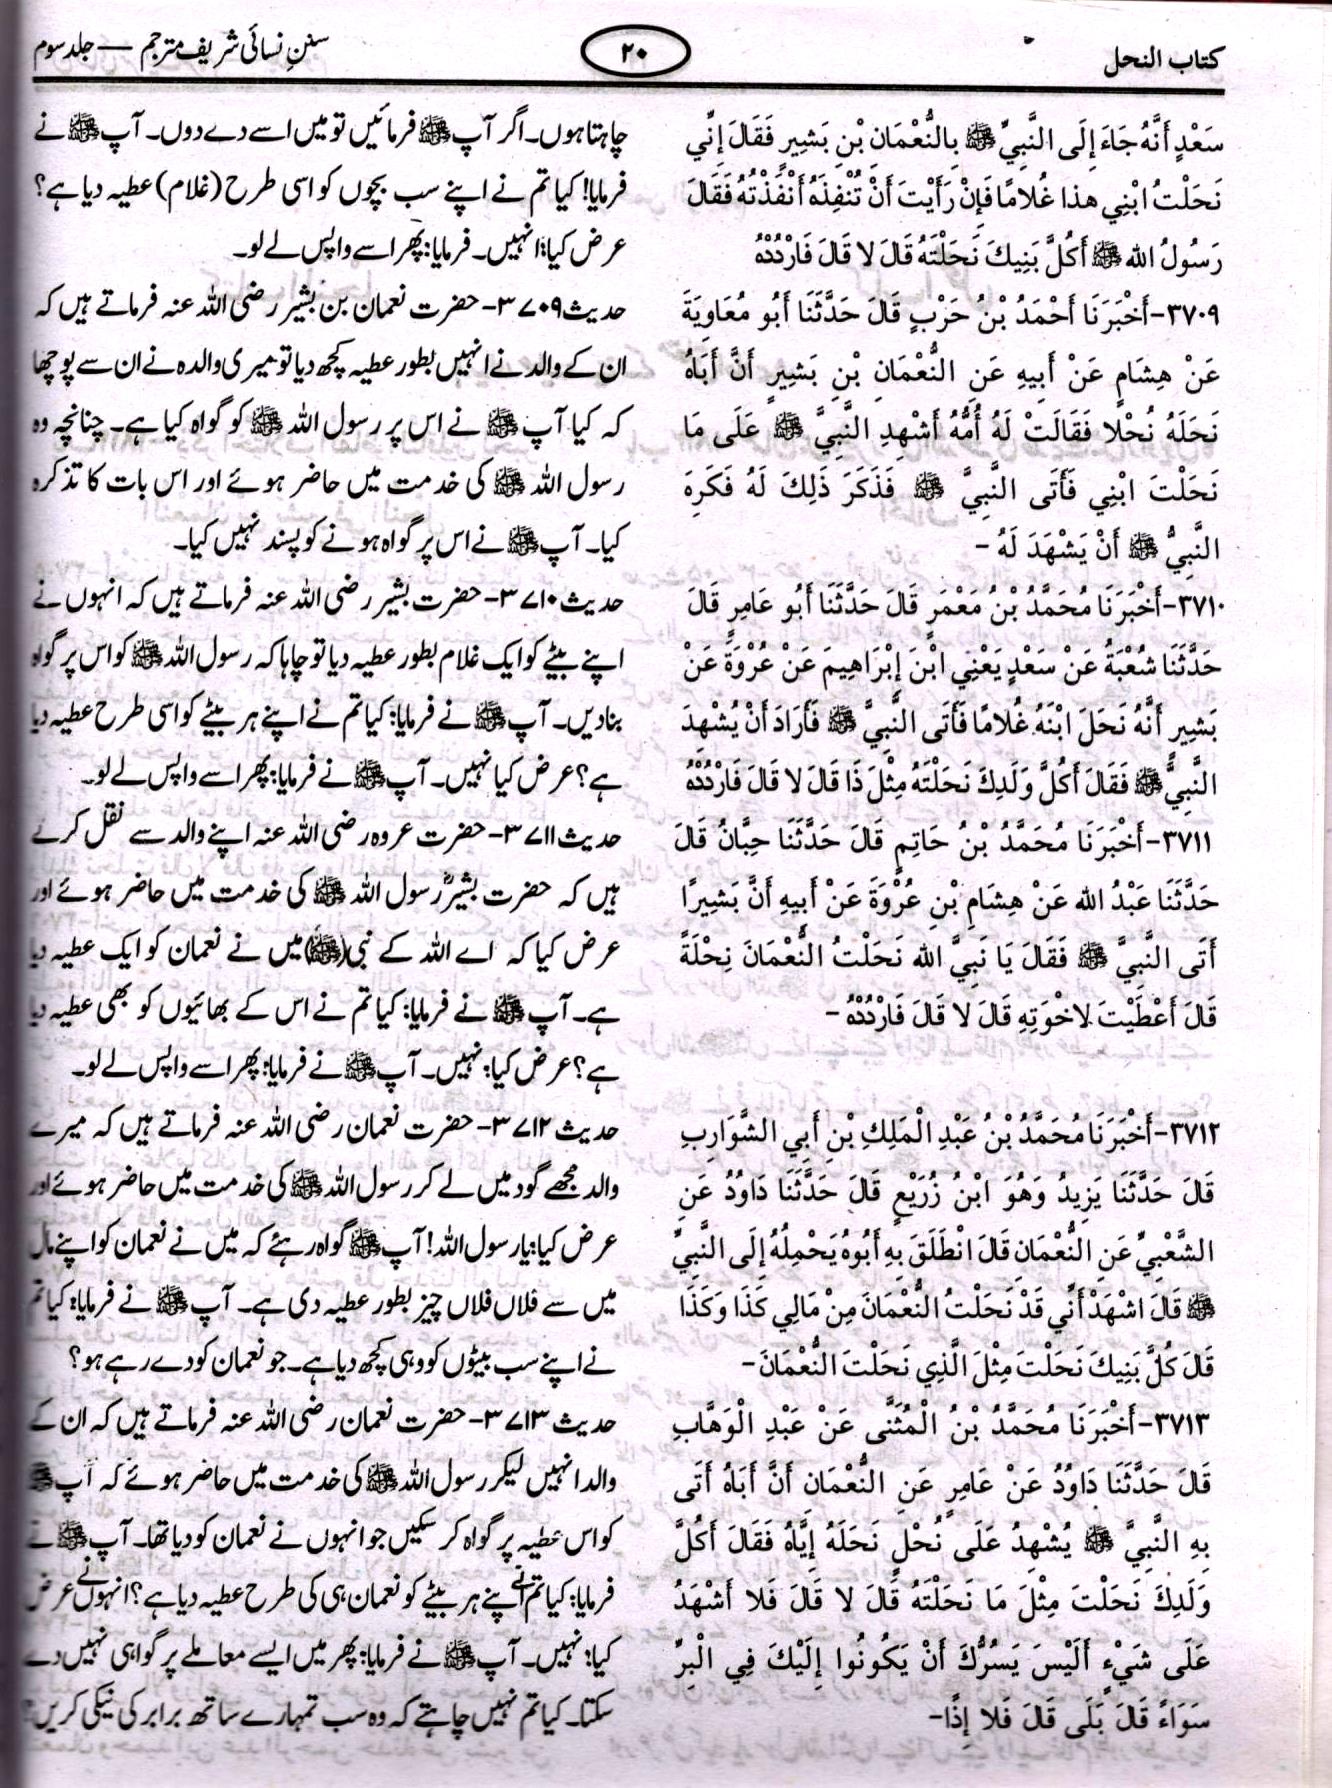 كتاب النحل
۲۰
سننِ نسائی شریف مترجم — جلد سوم
سَعْدٍ أَنَّهُ جَاءَ إِلَى النَّبِيِّ ﷺ بِالنُّعْمَانِ بْنِ بَشِيرٍ فَقَالَ إِنِّي
نَحَلْتُ ابْنِي هذا غُلامًا فَإِنْ رَأَيْتَ أَنْ تُنْفِذَهُ أَنْفَذْتُهُ فَقَالَ
رَسُولُ الله ﷺ أَكُلَّ بَنِيكَ نَحَلْتَهُ قَالَ لا قَالَ فَارْدُدْهُ
۳۷۰۹-أَخْبَرَنَا أَحْمَدُ بْنُ حَرْبٍ قَالَ حَدَّثَنَا أَبُو مُعَاوِيَةَ
عَنْ هِشَامٍ عَنْ أَبِيهِ عَنِ النُّعْمَانِ بْنِ بَشِيرٍ أَنَّ أَبَاهُ
نَحَلَهُ نُحْلا فَقَالَتْ لَهُ أُمُّهُ أَشْهِدِ النَّبِيَّ ﷺ عَلَى مَا
نَحَلْتَ ابْنِي فَأَتَى النَّبِيَّ ﷺ فَذَكَرَ ذَلِكَ لَهُ فَكَرِهَ
النَّبِيُّ ﷺ أَنْ يَشْهَدَ لَهُ -
۳۷۱۰-أَخْبَرَنَا مُحَمَّدُ بْنُ مَعْمَرٍ قَالَ حَدَّثَنَا أَبُو عَامِرٍ قَالَ
حَدَّثَنَا شُعْبَةُ عَنْ سَعْدٍ يَعْنِي ابْنَ إِبْرَاهِيمَ عَنْ عُرْوَةَ عَنْ
بَشِيرٍ أَنَّهُ نَحَلَ ابْنَهُ غُلامًا فَأَتَى النَّبِيَّ ﷺ فَأَرَادَ أَنْ يُشْهِدَ
النَّبِيَّ ﷺ فَقَالَ أَكُلَّ وَلَدِكَ نَحَلْتَهُ مِثْلَ ذَا قَالَ لا قَالَ فَارْدُدْهُ
۳۷۱۱-أَخْبَرَنَا مُحَمَّدُ بْنُ حَاتِمٍ قَالَ حَدَّثَنَا حِبَّانُ قَالَ
حَدَّثَنَا عَبْدُ الله عَنْ هِشَامِ بْنِ عُرْوَةَ عَنْ أَبِيهِ أَنَّ بَشِيرًا
أَتَى النَّبِيَّ ﷺ فَقَالَ يَا نَبِيَّ الله نَحَلْتُ النُّعْمَانَ نِحْلَةً
قَالَ أَعْطَيْتَ لاخْوَتِهِ قَالَ لا قَالَ فَارْدُدْهُ -
۳۷۱۲-أَخْبَرَنَا مُحَمَّدُ بْنُ عَبْدِ الْمَلِكِ بْنِ أَبِي الشَّوَارِبِ
قَالَ حَدَّثَنَا يَزِيدُ وَهُوَ ابْنُ زُرَيْعٍ قَالَ حَدَّثَنَا دَاوُدُ عَنِ
الشَّعْبِيِّ عَنِ النُّعْمَانِ قَالَ انْطَلَقَ بِهِ أَبُوهُ يَحْمِلُهُ إِلَى النَّبِيِّ
ﷺ قَالَ اشْهَدْ أَنِّي قَدْ نَحَلْتُ النُّعْمَانَ مِنْ مَالِي كَذَا وَكَذَا
قَالَ كُلَّ بَنِيكَ نَحَلْتَ مِثْلَ الَّذِي نَحَلْتَ النُّعْمَانَ-
۳۷۱۳-أَخْبَرَنَا مُحَمَّدُ بْنُ الْمُثَنَّى عَنْ عَبْدِ الْوَهَّابِ
قَالَ حَدَّثَنَا دَاوُدُ عَنْ عَامِرٍ عَنِ النُّعْمَانِ أَنَّ أَبَاهُ أَتَى
بِهِ النَّبِيَّ ﷺ يُشْهِدُ عَلَى نُحْلٍ نَحَلَهُ إِيَّاهُ فَقَالَ أَكُلَّ
وَلَدِكَ نَحَلْتَ مِثْلَ مَا نَحَلْتَهُ قَالَ لا قَالَ فَلا أَشْهَدُ
عَلَى شَيْءٍ أَلَيْسَ يَسُرُّكَ أَنْ يَكُونُوا إِلَيْكَ فِي الْبِرِّ
سَوَاءً قَالَ بَلَى قَالَ فَلا إِذًا-
چاہتا ہوں۔ اگر آپ ﷺ فرمائیں تو میں اسے دے دوں۔ آپ ﷺ نے
فرمایا! کیا تم نے اپنے سب بچوں کو اسی طرح (غلام) عطیہ دیا ہے؟
عرض کیا: نہیں۔ فرمایا: پھر اسے واپس لے لو۔
حدیث ۳۷۰۹- حضرت نعمان بن بشیر رضی اللہ عنہ فرماتے ہیں کہ
ان کے والد نے انہیں بطور عطیہ کچھ دیا تو میری والدہ نے ان سے پوچھا
کہ کیا آپ ﷺ نے اس پر رسول اللہ ﷺ کو گواہ کیا ہے۔ چنانچہ وہ
رسول اللہ ﷺ کی خدمت میں حاضر ہوئے اور اس بات کا تذکرہ
کیا۔ آپ ﷺ نے اس پر گواہ ہونے کو پسند نہیں کیا۔
حدیث ۳۷۱۰- حضرت بشیر رضی اللہ عنہ فرماتے ہیں کہ انہوں نے
اپنے بیٹے کو ایک غلام بطور عطیہ دیا تو چاہا کہ رسول اللہ ﷺ کو اس پر گواہ
بنا دیں۔ آپ ﷺ نے فرمایا: کیا تم نے اپنے ہر بیٹے کو اسی طرح عطیہ دیا
ہے؟ عرض کیا نہیں۔ آپ ﷺ نے فرمایا: پھر اسے واپس لے لو۔
حدیث ۳۷۱۱- حضرت عروہ رضی اللہ عنہ اپنے والد سے نقل کرتے
ہیں کہ حضرت بشیرؓ رسول اللہ ﷺ کی خدمت میں حاضر ہوئے اور
عرض کیا کہ اے اللہ کے نبی (ﷺ) میں نے نعمان کو ایک عطیہ دیا
ہے۔ آپ ﷺ نے فرمایا: کیا تم نے اس کے بھائیوں کو بھی عطیہ دیا
ہے؟ عرض کیا: نہیں۔ آپ ﷺ نے فرمایا: پھر اسے واپس لے لو۔
حدیث ۳۷۱۲- حضرت نعمان رضی اللہ عنہ فرماتے ہیں کہ میرے
والد مجھے گود میں لے کر رسول اللہ ﷺ کی خدمت میں حاضر ہوئے اور
عرض کیا: یا رسول اللہ! آپ ﷺ گواہ رہئے کہ میں نے نعمان کو اپنے مال
میں سے فلاں فلاں چیز بطور عطیہ دی ہے۔ آپ ﷺ نے فرمایا: کیا تم
نے اپنے سب بیٹوں کو وہی کچھ دیا ہے۔ جو نعمان کو دے رہے ہو؟
حدیث ۳۷۱۳- حضرت نعمان رضی اللہ عنہ فرماتے ہیں کہ ان کے
والد انہیں لیکر رسول اللہ ﷺ کی خدمت میں حاضر ہوئے کہ آپ ﷺ
کو اس عطیہ پر گواہ کر سکیں جو انہوں نے نعمان کو دیا تھا۔ آپ ﷺ نے
فرمایا: کیا تم نے اپنے ہر بیٹے کو نعمان ہی کی طرح عطیہ دیا ہے؟ انہوں نے عرض
کیا: نہیں۔ آپ ﷺ نے فرمایا: پھر میں ایسے معاملے پر گواہی نہیں دے
سکتا۔ کیا تم نہیں چاہتے کہ وہ سب تمہارے ساتھ برابر کی نیکی کریں؟